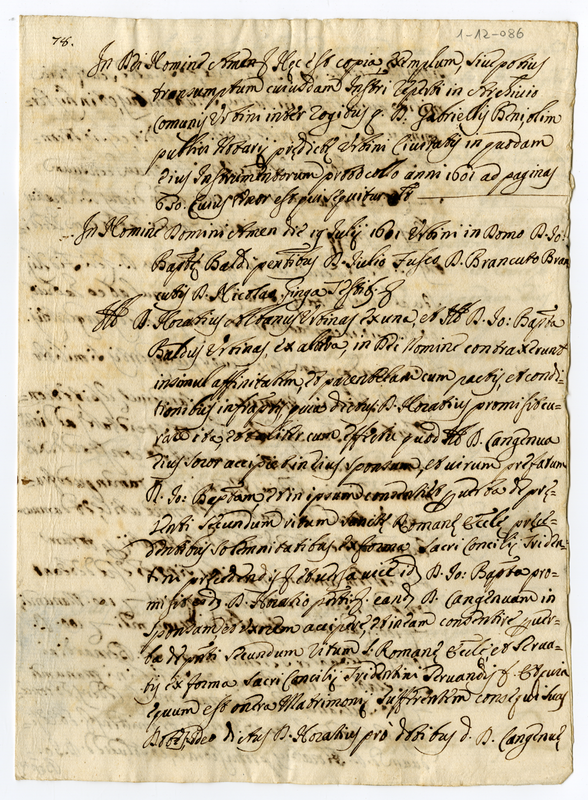 78.
1-12-086
In Dei Nomine Amen Hec est copia exemplum, siue potius
transumptum cuiusdam Instri reperti in Archiuio
Comunis Urbini inter rogitus q. D. Gabriellis
publici Notarij Urbini Ciuitatis in quodam
eius Instrumentorum prothocollo anni 1601 ad paginas
630. Cuius tenor est qui sequitur
In Nomine Domini Amen die 19 Julij 1601 Urbini in Domo D. Jo:
Bapte Baldi pentibus D. Julio Fusco D. Brancuto Bran
cutijs D. Nicolao Ginga Testib;
D. Horatius Albanus Urbinas ex una, et D. Jo: Bapta
Baldus Urbinas ex altera, in Dei Nomine contraxerunt
insimul affinitatem, et parentelam cum pactis, et condi-
tionibus infrascriptis quia dictus D. Horatius promisit cu-
rare ita, et taliter cum effectu quod D. Cangenua
eius soror accipiet in eius sponsum, et uirum prefatum
D. Jo: Baptam et in ipsum consentiet p uerba de pre-
senti secundum ritum sancte Romane Ecclie, prece-
dentibus solemnitatibus ex forma Sacri Concilij Triden-
tini et uersa uice id. D. Jo: Bapta pro-
misit eid. D. Horatio eand. D. Cangenuam in
sponsam, et uxorem accipere, et in eam consentire p uer-
ba de pnti secundum ritum S. Romane Eccle et serua-
tis ex forma Sacri Concilij Tridentini seruandis Et quia
equum est onera Matrimonij sufferentem consequi
Dotes, ideo dictus D. Horatius pro dotibus d. D. Cangenue